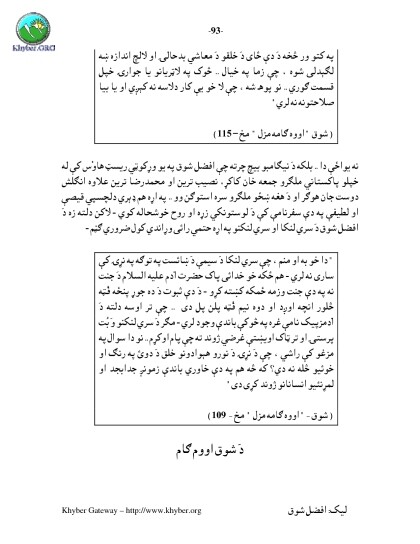 Khyber.ORG
-93-
په کتو ور څخه دَ دې ځای دَ خلقو دَ معاشي بدحالۍ او لالچ اندازه ښه
لګېدلی شوه ، چې زما په خیال .. څوک په لاټریانو یا جوارۍ خپل
قسمت ګوري.. نو پوهه شه ، چې لا خو یې کار دلاسه نه کېږي او یا بیا
صلاحتونه نه لري"
( شوق "اووه ګامه مزل" مخ – 115)
نه یواځې دا .. بلکه دَ نیګامبو بیچ چرته چې افضل شوق په یو وړکوټي ریسټ هاؤس کې له
خپلو پاکستاني ملګرو جمعه خان کاکړ، نصیب ترین او محمدرضا ترین علاوه انګلش
دوست جان هوګر او دَ هغه ښځو ملګرو سره استوګن وو .. په اړه هم ډېرې دلچسپې قیصې
او لطیفې په دې سفرنامې کې دَ لوستونکي زړه او روح خوشحاله کوي - لاکن دلته زه دَ
افضل شوق دَ سري لنکا او سري لنکنو په اړه حتمي رائے وړاندې کول ضروري ګڼم -
"دا خو به او منم ، چې سري لنکا دَ سیمې دَ ښائست په توګه په نړۍ کې
ساری نه لري - هم ځکه خو خدائی پاک حضرت ادم علیه السلام دَ جنت
نه په دې جنت وزمه ځمکه کښته کړو - دَ دې ثبوت دَ ده جوړ پنځه فټه
څلور انچه اوږد او دوه نیم فټه پلن پل دی .. چې تر اوسه دلته دَ
ادمزپیک نامې غره په څوکې باندې وجود لري - مګر دَ سري لنکنو دَ بُت
پرستۍ او تر ټاک او ښتې غرضي ژوند ته چې پام اوکړم.. نو دا سوال په
مزغو کې راشي ، چې دَ نړۍ دَ نورو هېوادونو خلق دَ دوئ په رنګ او
خوئیو ځله نه دي؟ که څه هم په دې خاورې باندې زموږ جدابجد او
لمړنئیو انسانانو ژوند کړی دی"
( شوق - "اووه ګامه مزل" مخ - 109)
دَ شوق اووم ګام
Khyber Gateway – http://www.khyber.org
لیک: افضل شوق